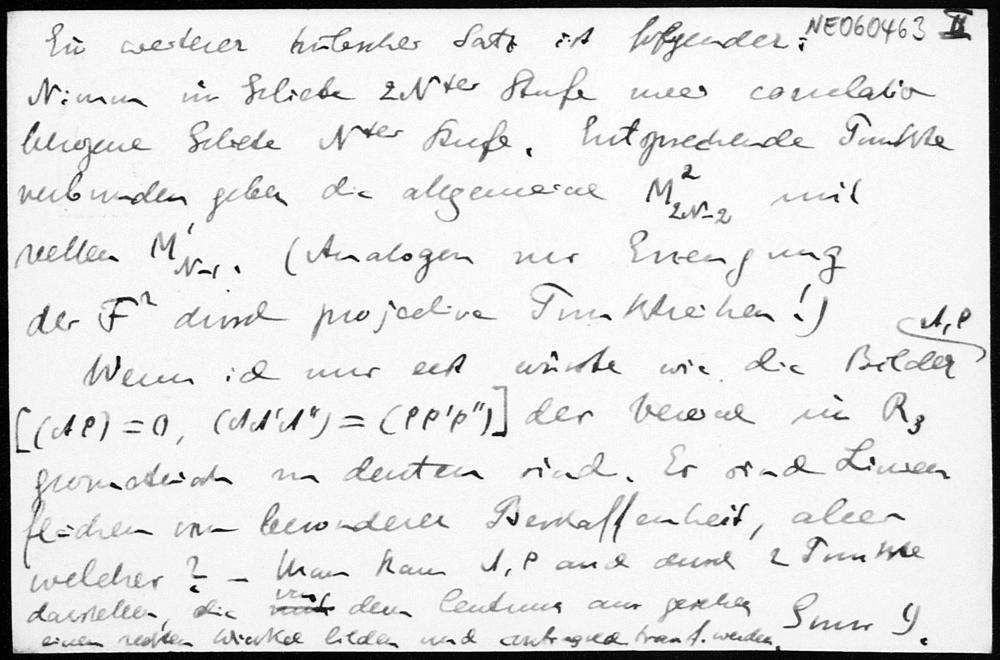 NE060463 II
Ein weiterer hübscher Satz ist folgender:
Nimm im Gebiete 2Nter Stufe zwei correlativ
bezogene Gebiete Nter Stufe. Entsprechende Punkte
verbunden geben die allgemeine M²2N-2 mit
reellen M'N-1. (Analogon zur Erzeugung
der F² durch projective Punktreihen!)
Wenn ich nur erst wüsste wie die Bilder A, P
[(AP) = 0, (AA'A'') = (PP'P'')] der in R3
geometrisch zu deuten sind. Es sind Linien
flächen von besonderer Beschaffenheit, aber
welcher? – Man kann A, P auch durch 2 Punkte
darstellen, die von dem Centrum aus gesehen
einen rechten Winkel bilden und transf. werden.